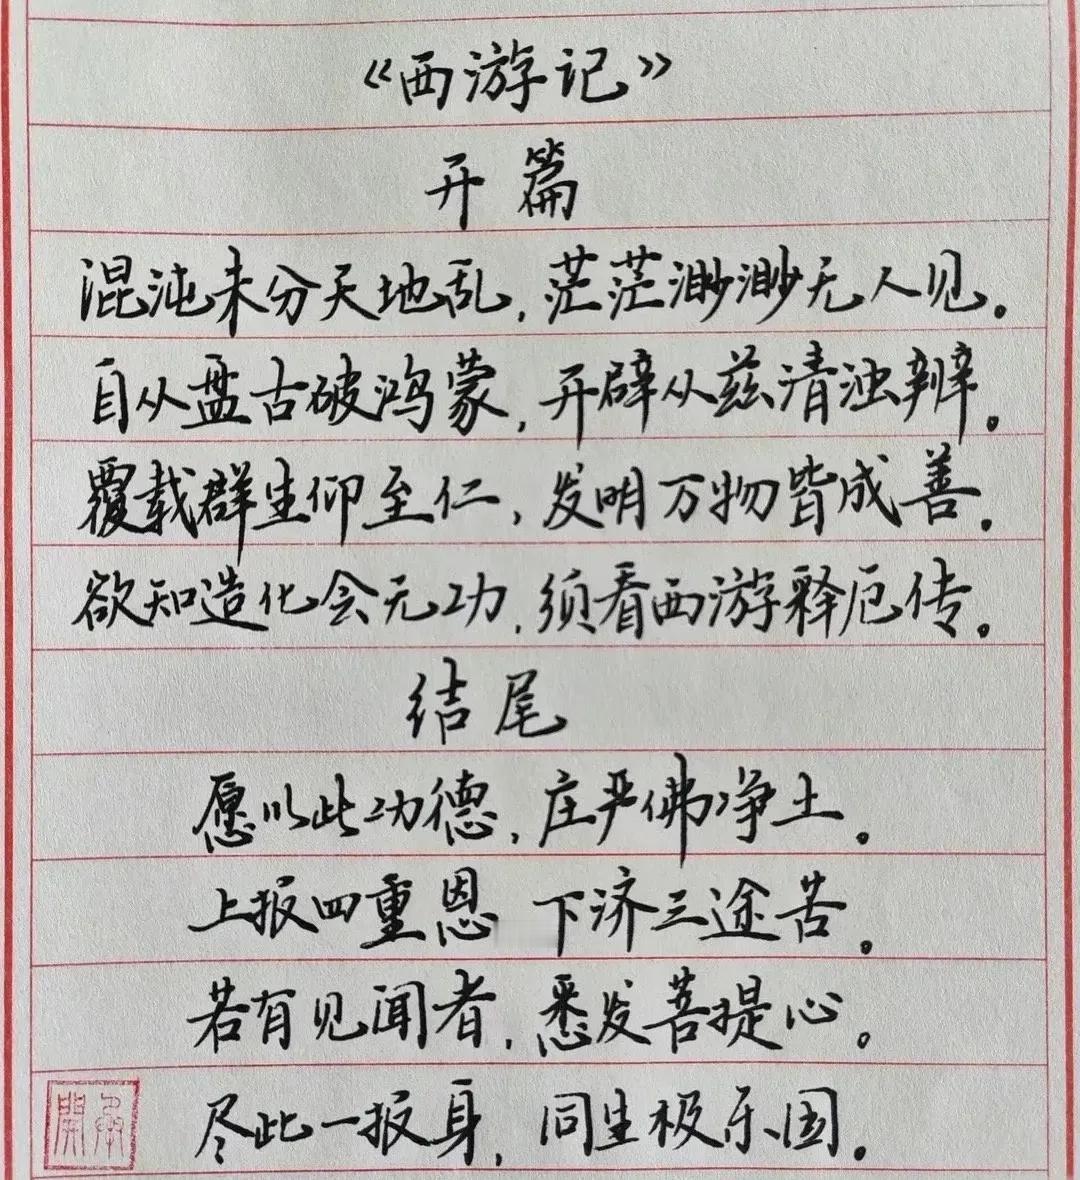 《西游记》
开篇
混沌未分天地乱,茫茫渺渺无人见。
自从盘古破鸿蒙,开辟从兹清浊辨。
覆载群生仰至仁,发明万物皆成善。
欲知造化会元功,须看西游释厄传。
结尾
愿以此功德,庄严佛净土。
上报四重恩 下济三途苦。
若有见闻者,悉发菩提心。
尽此一报身,同生极乐国。